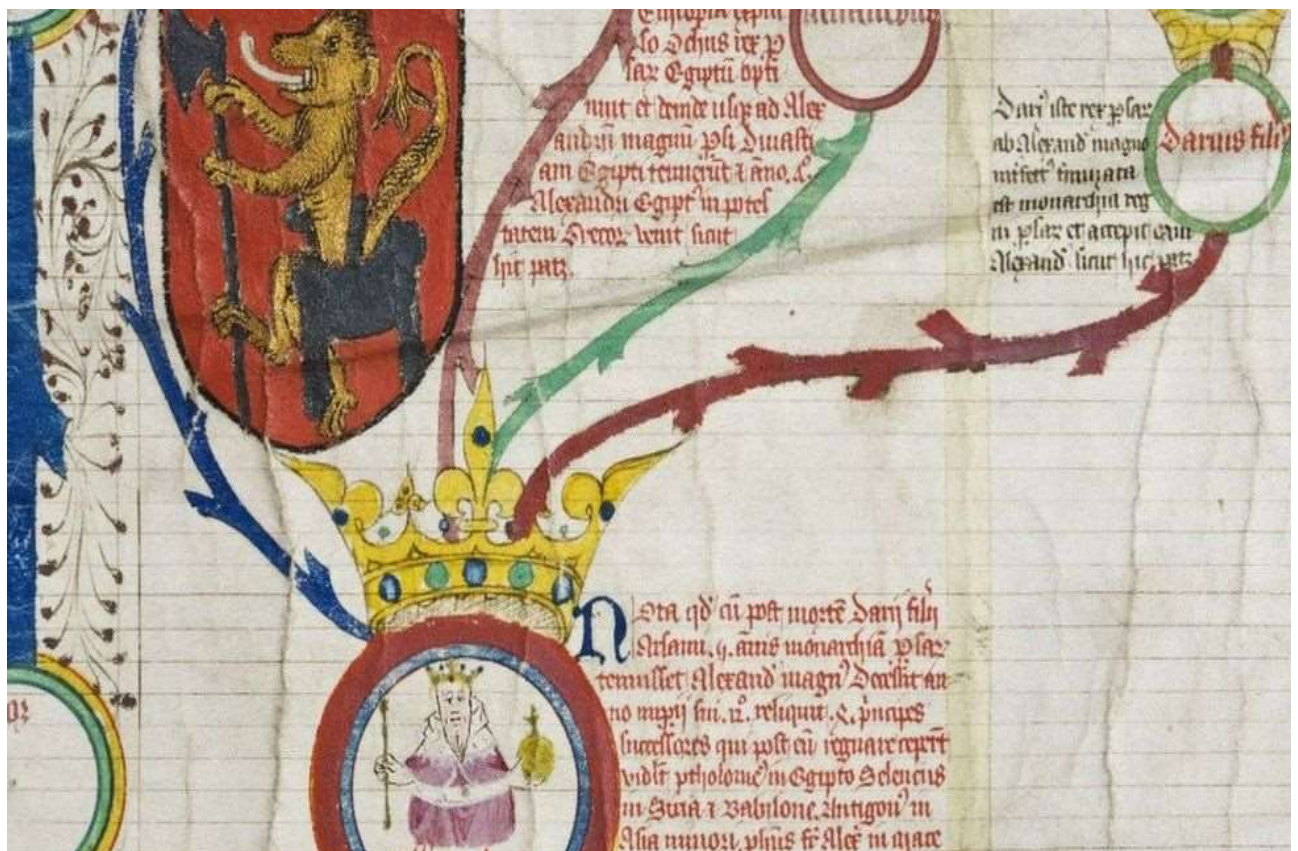 so Ochus rex p
sar Egiptū opti
nuit et deinde usq ad Alex
andrū magnū psi Dinasti
am Egipti tenuerūt
Alexandri Egipt' in potes
tatem Grecor venit sicut
hic patz.
Dari' iste rex psar
ab Alexand' magno
est monarchia reg
ni psar et accepit eam
Alexand' sicut hic patz
Darius fili'
Nota qd cū post mortē Darij filij
Arsami .ij. annis monarchiā psar
tenuisset Alexand' magn' Decessit an
no impij sui .12. reliquit principes
successores qui post eū regnare ceperūt
ptholome' in Egipto Seleucus
in Siria & Babilone Antigon' in
Asia minori, phus fr Alex in